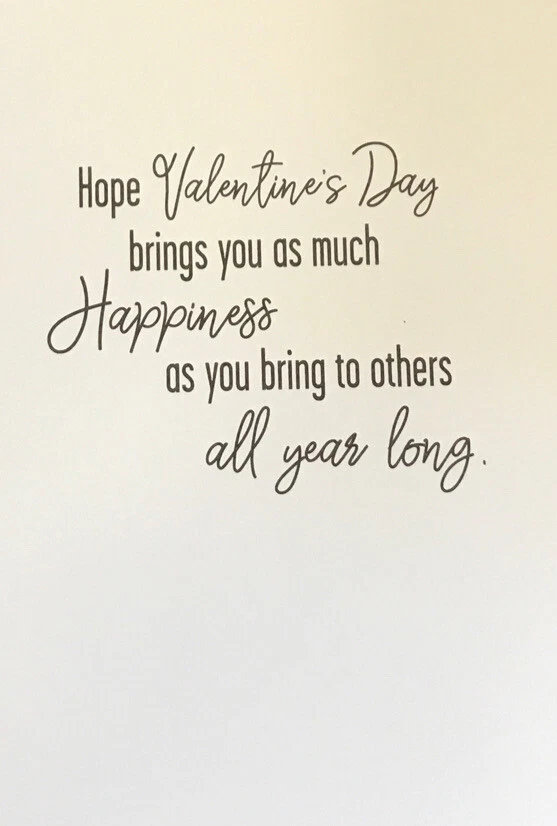 Hope Valentine's Day
brings you as much
Happiness
as you bring to others
all year long.